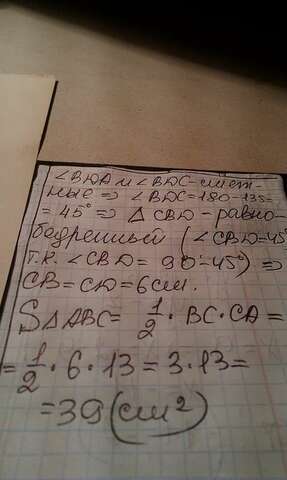 ∠BDA и ∠BDC-смеж-
ные ⇒ ∠BDC=180-135=
= 45° ⇒ Δ CBD - равно-
бедренный (∠CBD=45°
т.к. ∠CBD = 90°-45°) ⇒
CB = CD = 6 см.
S ΔABC = 1/2 · BC · CA =
= 1/2 · 6 · 13 = 3 · 13 =
= 39 (см²)